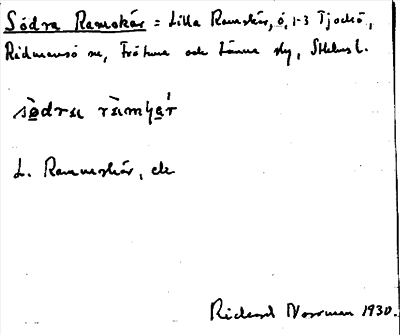 Södra Ramskär = Lilla Ramskär, ö, 1-3 Tjockö,
Rådmansö sn, Frötuna och Länna skg, Sthlms l.
sö̀dra ràmʂæ̨r
L. Rammskär, ek
Rickard Norrman 1930.